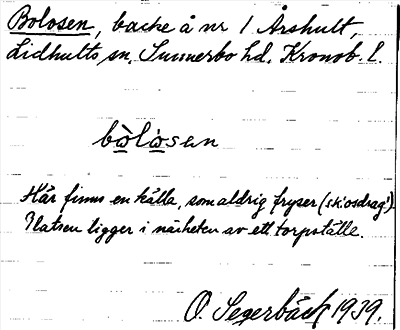 Bolosen, backe å nr 1 Årshult,
Lidhults sn. Sunnerbo hd. Kronob. l.
bòlòsen
Här finns en källa, som aldrig fryser (skiosdrag').
Platsen ligger i närheten av ett torpställe.
O. Segerbäck 1939.